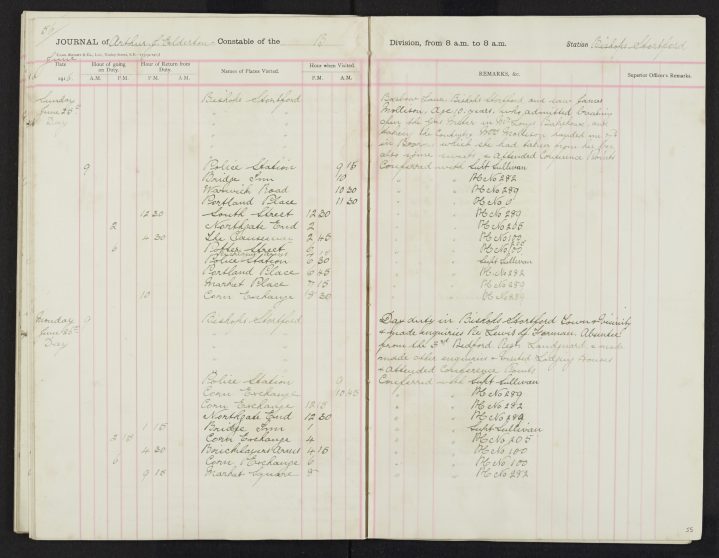 JOURNAL of Arthur S. Elderton Constable of the B
Division, from 8 a.m. to 8 a.m. Station Bishops Stortford
June
Date
191
Hour of going on Duty.
A.M. P.M.
Hour of Return from Duty.
P.M. A.M.
Names of Places Visited.
Hour when Visited.
P.M. A.M.
REMARKS, &c.
Superior Officer's Remarks.
Sunday Bishops Stortford
June 25th
Day
Lane, Bishops Stortford and saw James
Mollison, Age 10 years, who admitted breaking
open the Gas Meter in and
taken the Contents. Mrs Mollison handed me
in which she had taken from his
also some sweets, & Attended Conference Points
9 Police Station 9 15 Conferred with Supt Sullivan
Bridge Inn 10 " " PC No 282
Warwick Road 10 30 " " PC No 289
Portland Place 11 30 " " PC No
12 30 South Street 12 30 " " PC No 289
2 Northgate End 2 " " PC No 205
4 30 The Causeway 2 45 " " PC No 100
6 Potter Street 6 " " PC No 100
Police Station 6 30 " " Supt Sullivan
Portland Place 6 45 " " PC No 282
Market Place 7 15 " " PC No 289
10 Corn Exchange 9 30 " " PC No 289
Monday 9 Bishops Stortford Day duty in Bishops Stortford Town & Vicinity
June 26th & made enquiries Re Lewis H. Harman Absentee
Day from the 3rd Bedford Regt Landguard & made
made other enquiries & Visited Lodging Houses
& Attended Conference Points
Police Station 9 Conferred with Supt Sullivan
Corn Exchange 10 45 " " PC No 289
Corn Exchange 12 15 " " PC No 282
Northgate End 12 30 " " PC No 289
1 15 Bridge Inn 1 " " Supt Sullivan
3 15 Corn Exchange 4 " " PC No 205
4 30 Bricklayers Arms 4 15 " " PC No 100
6 Corn Exchange 6 " " PC No 100
9 15 Market Square 8 " " PC No 282
55